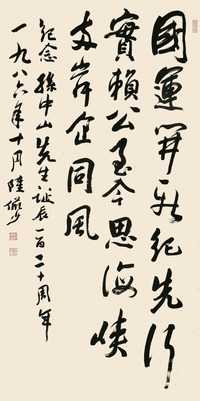 國運開新紀先行
實賴公至今思海峽
两岸企同風
紀念孫中山先生誕辰一百二十周年
一九八六年十月陸儼少